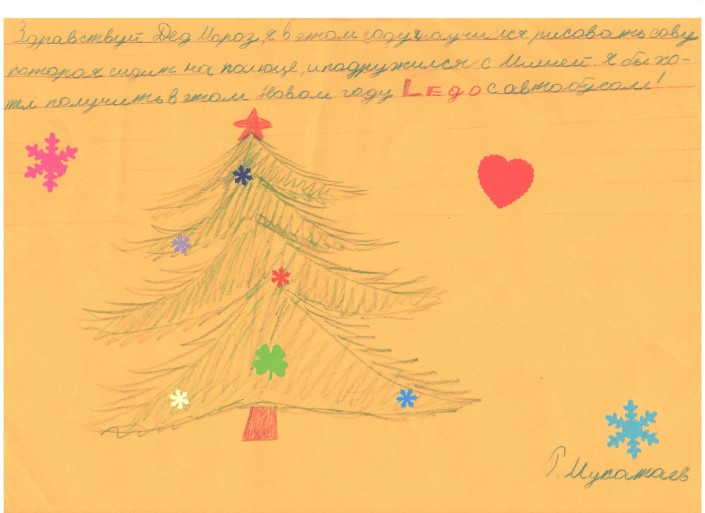 Здравствуй Дед Мороз, я в этом году научился, рисовать сову
которая сидит на полюце, и подружился с Илией. Я бы хо-
тел получить в этом Новом году LEGO с автобусом!
Г. Мукатаев